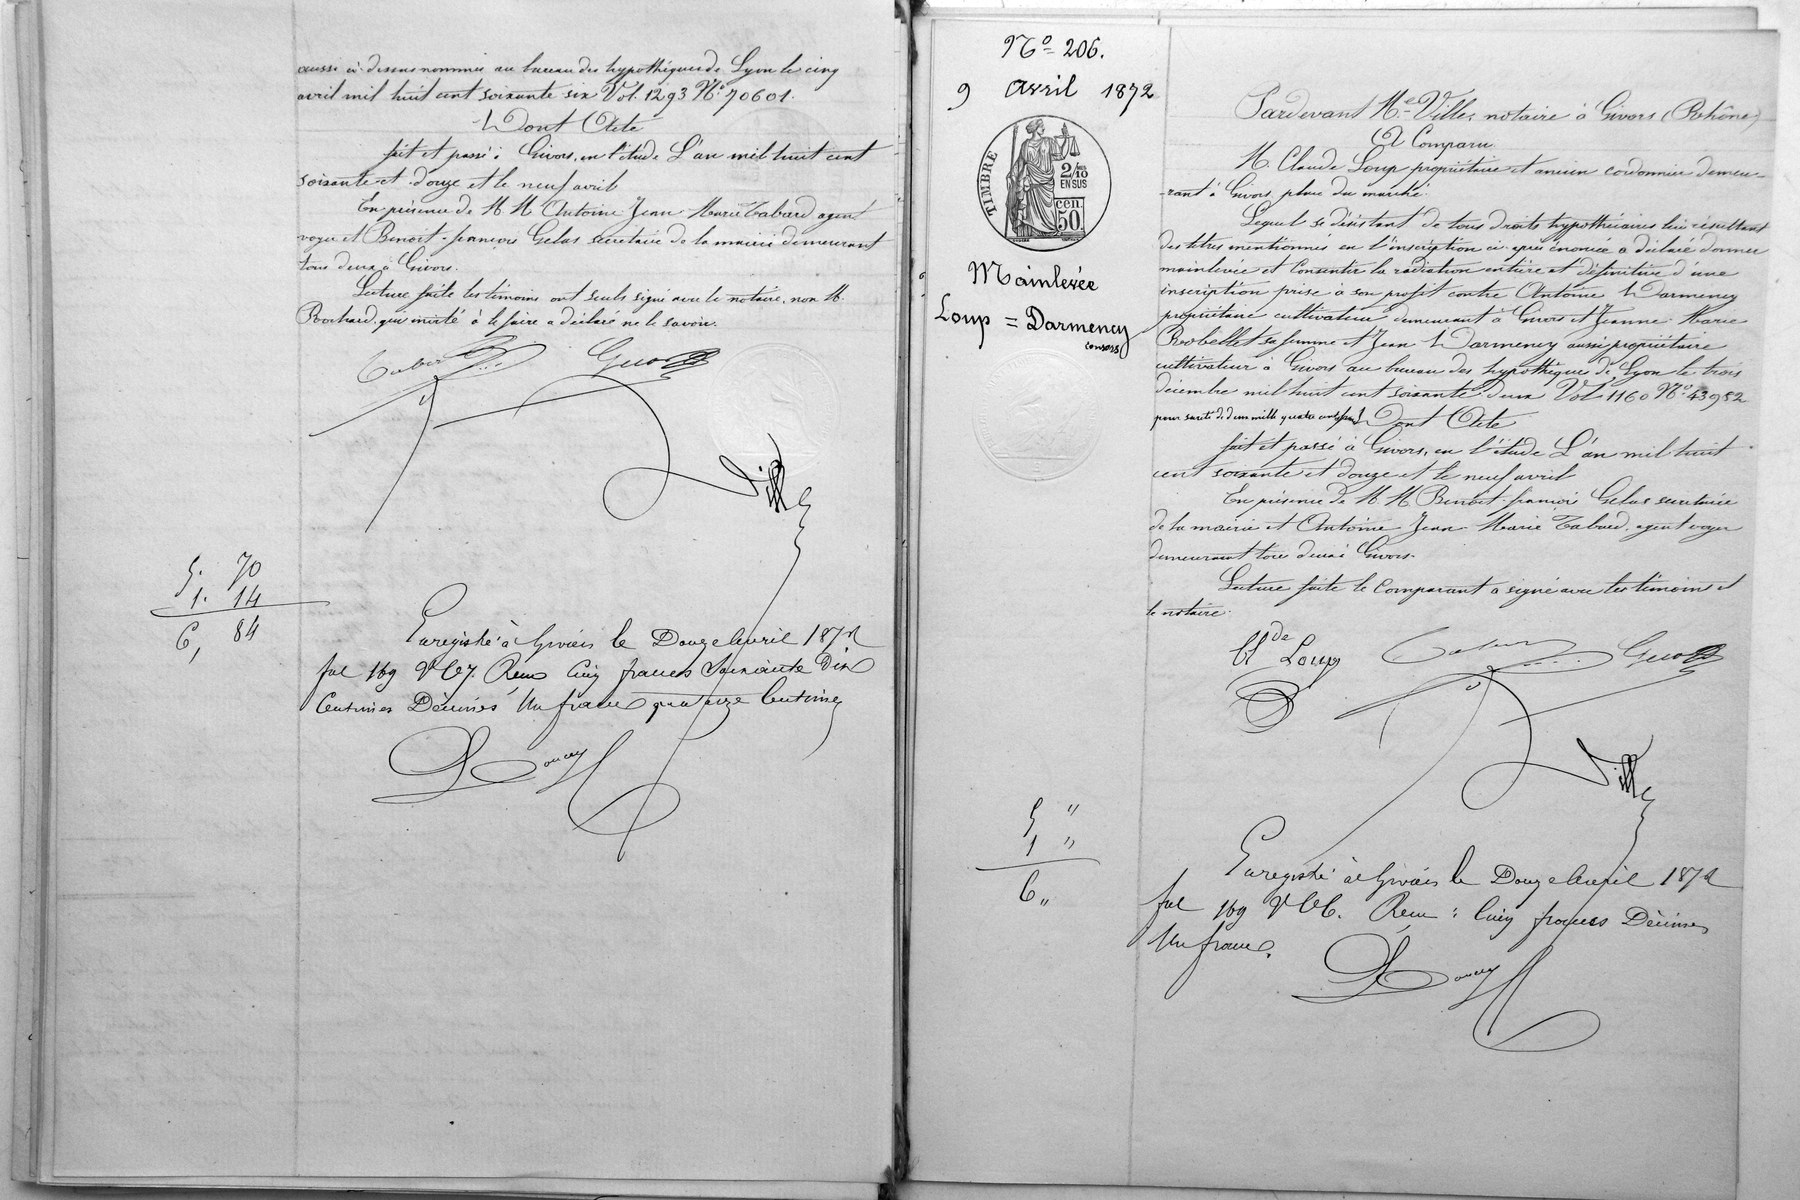 aussi ci-dessus nommée au bureau des hypothèques de Lyon le cinq
avril mil huit cent soixante six Vol. 1293 N° 70601.
Dont Acte
fait et passé à Givors, en l'étude L'an mil huit cent
soixante et douze et le neuf avril
En présence de M M Antoine Jean Marie Tabard agent
voyer et Benoit françois Gelas secrétaire de la mairie demeurant
tous deux à Givors.
Lecture faite les témoins ont seuls signé avec le notaire, non M.
qui invité à le faire a déclaré ne le savoir.
Ville
5. 70
1. 14
6, 84
Enregistré à Givors le Douze Avril 1872
fol 169 V° C 7. Reçu Cinq francs Soixante Dix
Centimes Décimes Un franc quatorze Centimes
N° 206.
9 Avril 1872
TIMBRE
2/10
EN SUS
cen.
50
Mainlevée
Loup = Darmency
consorts
Pardevant Me Ville, notaire à Givors (Rhône)
A Comparu
M. Claude Loup propriétaire et ancien cordonnier demeu-
-rant à Givors place du marché.
Lequel se désistant de tous droits hypothécaires lui résultant
des titres mentionnés en l'inscription ci-après énoncée a déclaré donner
mainlevée et consentir la radiation entière et définitive d'une
inscription prise à son profit contre Antoine Darmency
propriétaire cultivateur demeurant à Givors et Jeanne Marie
Robellet sa femme et Jean Darmency aussi propriétaire
cultivateur à Givors au bureau des hypothèques de Lyon le trois
décembre mil huit cent soixante deux Vol 1160 N° 43982
pour sureté de deux mille quatre cents francs Dont Acte
fait et passé à Givors, en l'étude L'an mil huit
cent soixante et douze et le neuf avril
En présence de M M Benoit françois Gelas secrétaire
de la mairie et Antoine Jean Marie Tabard, agent voyer
demeurant tous deux à Givors.
Lecture faite le comparant a signé avec les témoins et
le notaire.
Cl de Loup
Ville
5 "
1 "
6 "
Enregistré à Givors le Douze Avril 1872
fol 169 V° C 8. Reçu : Cinq francs Décimes
Un franc.